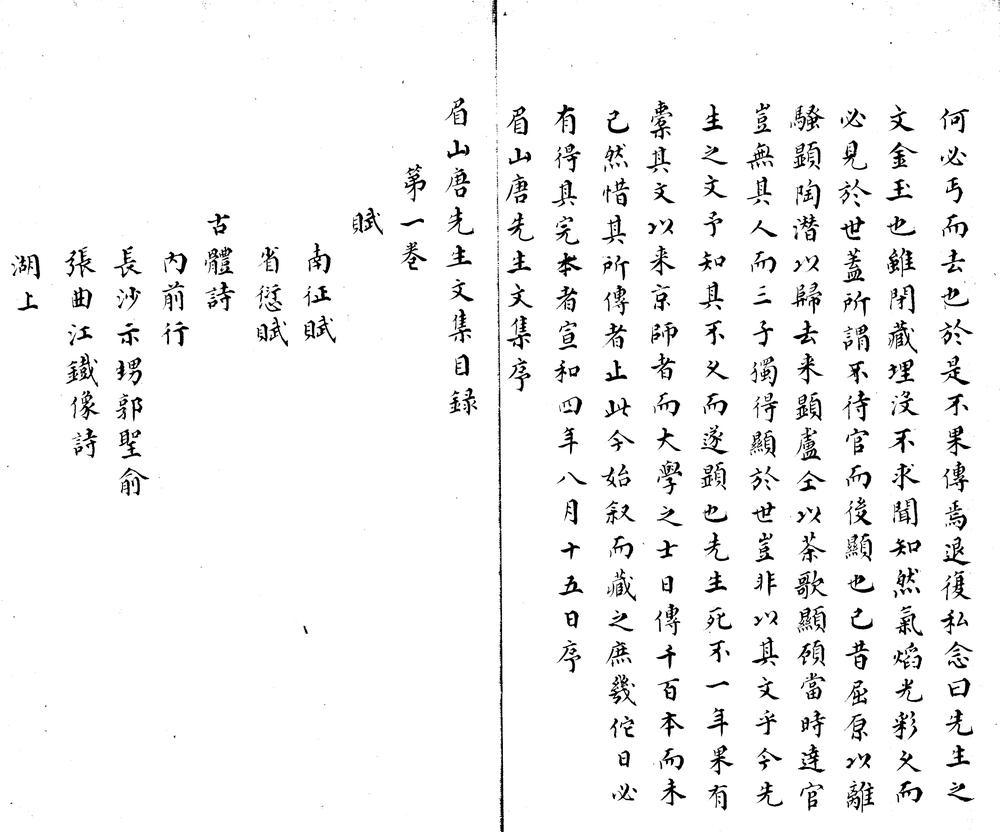 何必丐而去也於是不果傳焉退復私念曰先生之
文金玉也雖閉藏埋没不求聞知然氣焰光彩久而
必見於世蓋所謂不待官而後顯也已昔屈原以離
騷顯陶潛以歸去来顯盧仝以茶歌顯頋當時達官
豈無其人而三子獨得顯於世豈非以其文乎今先
生之文予知其不久而遂顯也先生死不一年果有
橐其文以来京師者而大學之士日傳千百本而未
已然惜其所傳者止此今始叙而藏之庶幾佗日必
有得其完本者宣和四年八月十五日序
眉山唐先生文集序
眉山唐先生文集目録
第一巻
賦
南征賦
省愆賦
古體詩
内前行
長沙示甥郭聖俞
張曲江鐵像詩
湖上